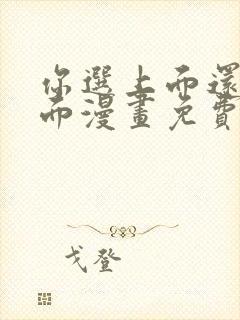 你選上而還
而漫畫免費
戈登